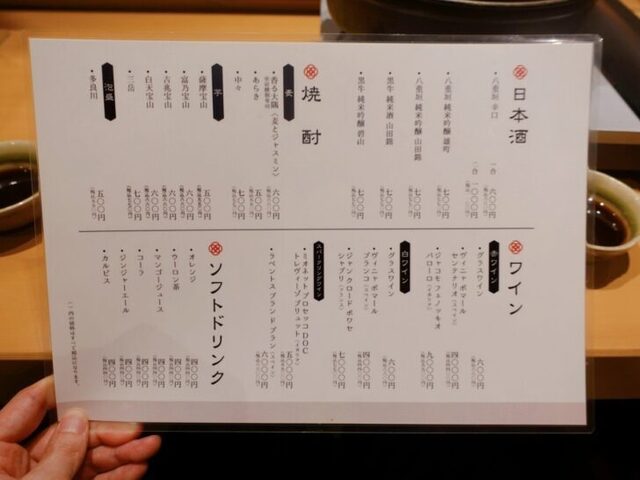 日本酒
・八重垣 辛口
一合 六〇〇円
二合 一〇〇〇円
・八重垣 純米吟醸 雄町
七〇〇円
・八重垣 純米吟醸 山田錦
七〇〇円
・黒牛 純米酒 山田錦
・黒牛 純米吟醸 碧山
七〇〇円
焼酎
麦
・香る大隅〈麦とジャスミン〉
六〇〇円
・あらき
五〇〇円
・中々
七〇〇円
芋
・薩摩宝山
五〇〇円
・富乃宝山
六〇〇円
・吉兆宝山
六〇〇円
・白天宝山
七〇〇円
・三岳
六〇〇円
泡盛
・多良川
五〇〇円
ワイン
赤ワイン
・グラスワイン
六〇〇円
・ヴィニャ ポマール
センテナリオ(スペイン)
四〇〇〇円
・ジャコモ フェノッキオ
バローロ(イタリア)
九〇〇〇円
白ワイン
・グラスワイン
六〇〇円
・ヴィニャ ポマール
ブランコ(スペイン)
四〇〇〇円
・ジャン クロード ボワセ
シャブリ(フランス)
七〇〇〇円
スパークリングワイン
・ミオネット プロセッコ DOC
トレヴィーゾ ブリュット(イタリア)
五〇〇〇円
・ラベントス ブラン ド ブラン(スペイン)
六〇〇〇円
ソフトドリンク
・オレンジ
四〇〇円
・ウーロン茶
四〇〇円
・マンゴージュース
四〇〇円
・コーラ
四〇〇円
・ジンジャーエール
四〇〇円
・カルピス
四〇〇円
( )内の価格はすべて税込になります。